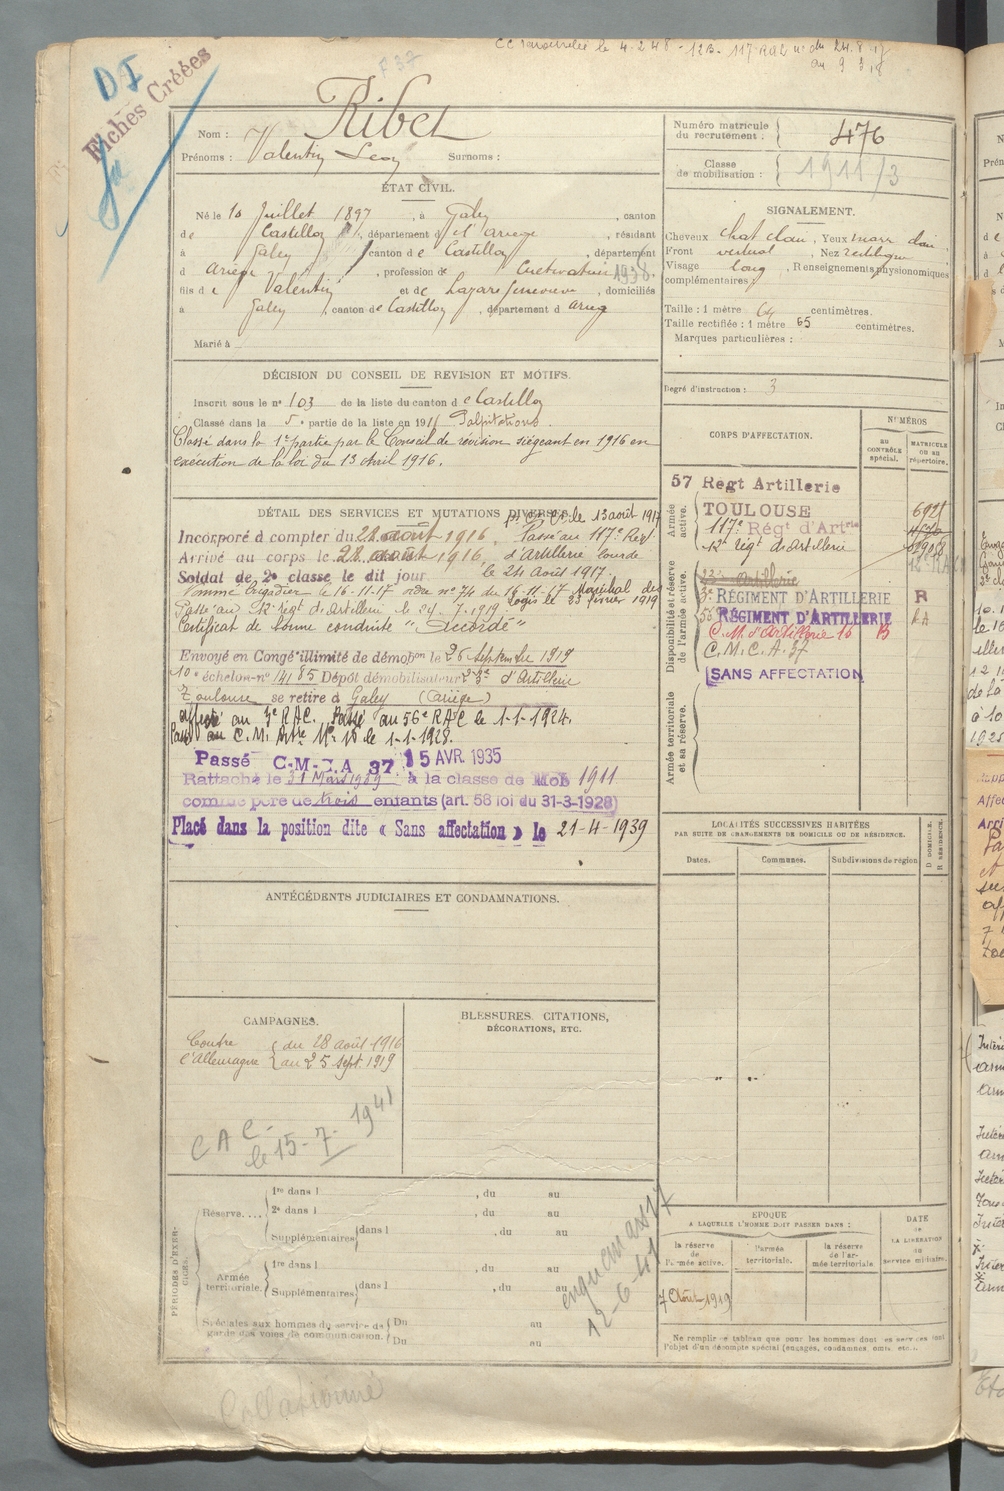 CC le 4-2-48 - 12B. 117 RAL du 24.8.17
au 9 3 18
DI
Fiches Créées
F 37
Nom : Ribet
Prénoms : Valentin Leon Surnoms :
ÉTAT CIVIL.
Né le 10 Juillet 1897, à Galey, canton
de Castillon, département d l'ariege, résidant
à Galey, canton de Castillon, département
d ariege, profession de Cultivateur 1938.
fils de Valentin et de Lazare Genevieve, domiciliés
à Galey, canton de Castillon, département d arieg
Marié à
DÉCISION DU CONSEIL DE REVISION ET MOTIFS.
Inscrit sous le n° 103 de la liste du canton de Castillon
Classé dans la 5e partie de la liste en 191 Palpitations.
Classé dans la 1e partie par le Conseil de révision siégeant en 1916 en
exécution de la loi du 13 Avril 1916.
DÉTAIL DES SERVICES ET MUTATIONS DIVERSES.
le 13 août 1917
Incorporé à compter du 28 août 1916. Passé au 117e Régt
Arrivé au corps le 28 août 1916, d'Artillerie lourde
Soldat de 2e classe le dit jour. le 24 Août 1917.
Nommé Brigadier le 16-11-17 ordre n° 74 du 16-11-17 Maréchal des
logis le 23 février 1919
Passé au 12e régt d'Artillerie le 24.7.1919.
Certificat de bonne conduite "Accordé"
Envoyé en Congé illimité de démobon le 26 septembre 1919
10e échelon n° 14185 Dépôt démobilisateur 23e d'Artillerie
Toulouse se retire à Galey (Ariège)
affecté au 3e RAC. Passé au 56e RAC le 1-1-1924.
Passé au C.M. Artie N° 16 le 1-1-1928.
Passé C.M.C.A 37 15 AVR. 1935
Rattaché le 31 Mars 1939 à la classe de MOB 1911
comme père de trois enfants (art. 58 loi du 31-3-1928)
Placé dans la position dite « Sans affectation » le 21-4-1939
ANTÉCÉDENTS JUDICIAIRES ET CONDAMNATIONS.
CAMPAGNES.
Contre du 28 août 1916
l'Allemagne au 25 sept. 1919
C A C.
le 15-7-1941
BLESSURES, CITATIONS,
DÉCORATIONS, ETC.
PÉRIODES D'EXERCICES.
Réserve....
1re dans l , du au
2e dans l , du au
Supplémentaires dans l , du au
Armée
territoriale.
1re dans l , du au
Supplémentaires dans l , du au
Spéciales aux hommes du service de
garde des voies de communication.
Du au
Du au
12-6-41
Collationné
Numéro matricule
du recrutement : 476
Classe
de mobilisation : 1911/3
SIGNALEMENT.
Cheveux chat clair, Yeux marr clair,
Front vertical, Nez rectiligne
Visage long, Renseignements physionomiques
complémentaires :
Taille : 1 mètre 64 centimètres.
Taille rectifiée : 1 mètre 65 centimètres.
Marques particulières :
Degré d'instruction : 3
CORPS D'AFFECTATION.
NUMÉROS
au
CONTRÔLE
spécial.
MATRICULE
ou au
répertoire.
Armée
active.
57 Régt Artillerie
TOULOUSE 6921
117e Régt d'Artrie
12e régt d'Artillerie
Disponibilité et réserve
de l'armée active.
Artillerie
3e RÉGIMENT D'ARTILLERIE R
56e RÉGIMENT D'ARTILLERIE RA
C.M. d'Artillerie 16 B
C.M.C.A. 37
SANS AFFECTATION
Armée territoriale
et sa réserve.
LOCALITÉS SUCCESSIVES HABITÉES
PAR SUITE DE CHANGEMENTS DE DOMICILE OU DE RÉSIDENCE.
Dates. Communes. Subdivisions de région
D DOMICILE.
R RÉSIDENCE.
ÉPOQUE
A LAQUELLE L'HOMME DOIT PASSER DANS :
la réserve
de
l'armée active.
l'armée
territoriale.
la réserve
de l'ar-
mée territoriale.
DATE
de
LA LIBÉRATION
du
service militaire.
7 Août 1919
Ne remplir ce tableau que pour les hommes dont les services font
l'objet d'un décompte spécial (engagés, condamnés, omis, etc.).